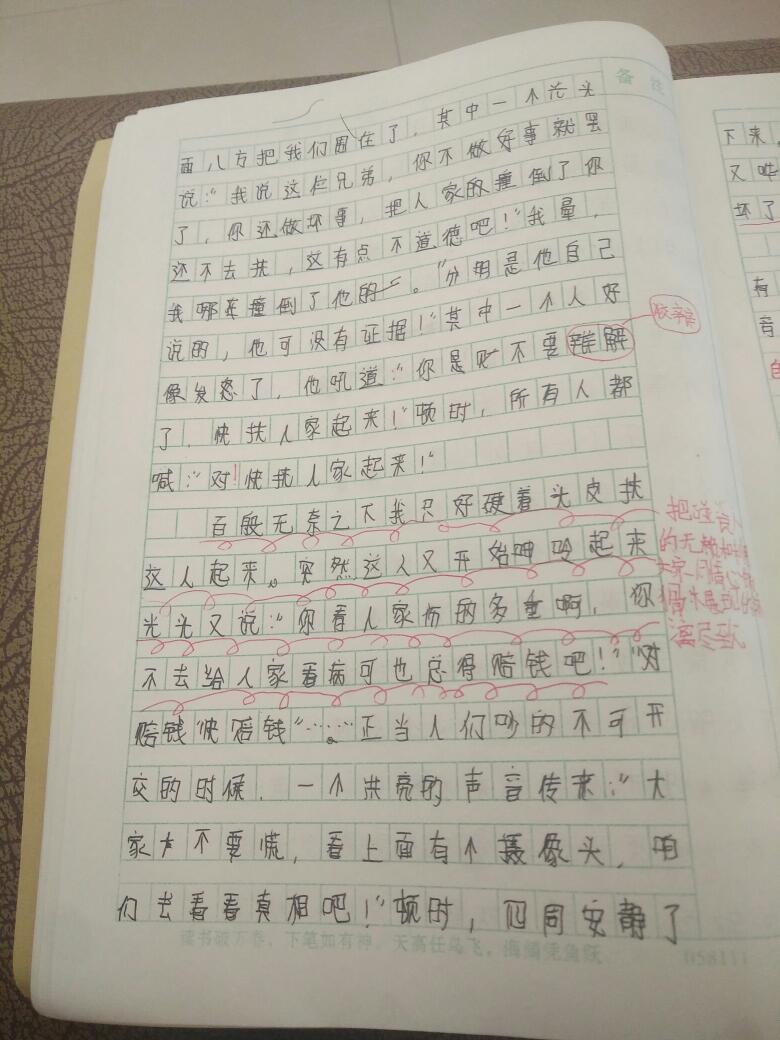 备注
面八方把我们围住了，其中一个光头
说："我说这位兄弟，你不做好事就罢
了，你还做坏事，把人家的撞倒了你
还不去扶，这有点不道德吧！"我晕，
我哪来撞倒了他的。"分明是他自己
说的，他可没有证据！"其中一个人好
像发怒了，他吼道："你是不要辩解
了，快扶人家起来！"顿时，所有人都
喊："对！快扶人家起来！"
百般无奈之下我只好硬着头皮扶
这人起来。突然这人又开始呻吟起来
光头又说："你看人家伤的多重啊，你
不去给人家看病可也总得赔钱吧！""对
赔钱"快赔钱"……正当人们吵的不可开
交的时候，一个洪亮的声音传来："大
家不要慌，看上面有个摄像头，咱
们去看看真相吧！"顿时，四周安静了
读书破万卷，下笔如有神。天高任鸟飞，海阔凭鱼跃
058111
把碰瓷人
的无赖和
大家同情心
淋漓尽致
下来，
又
坏了
有
音